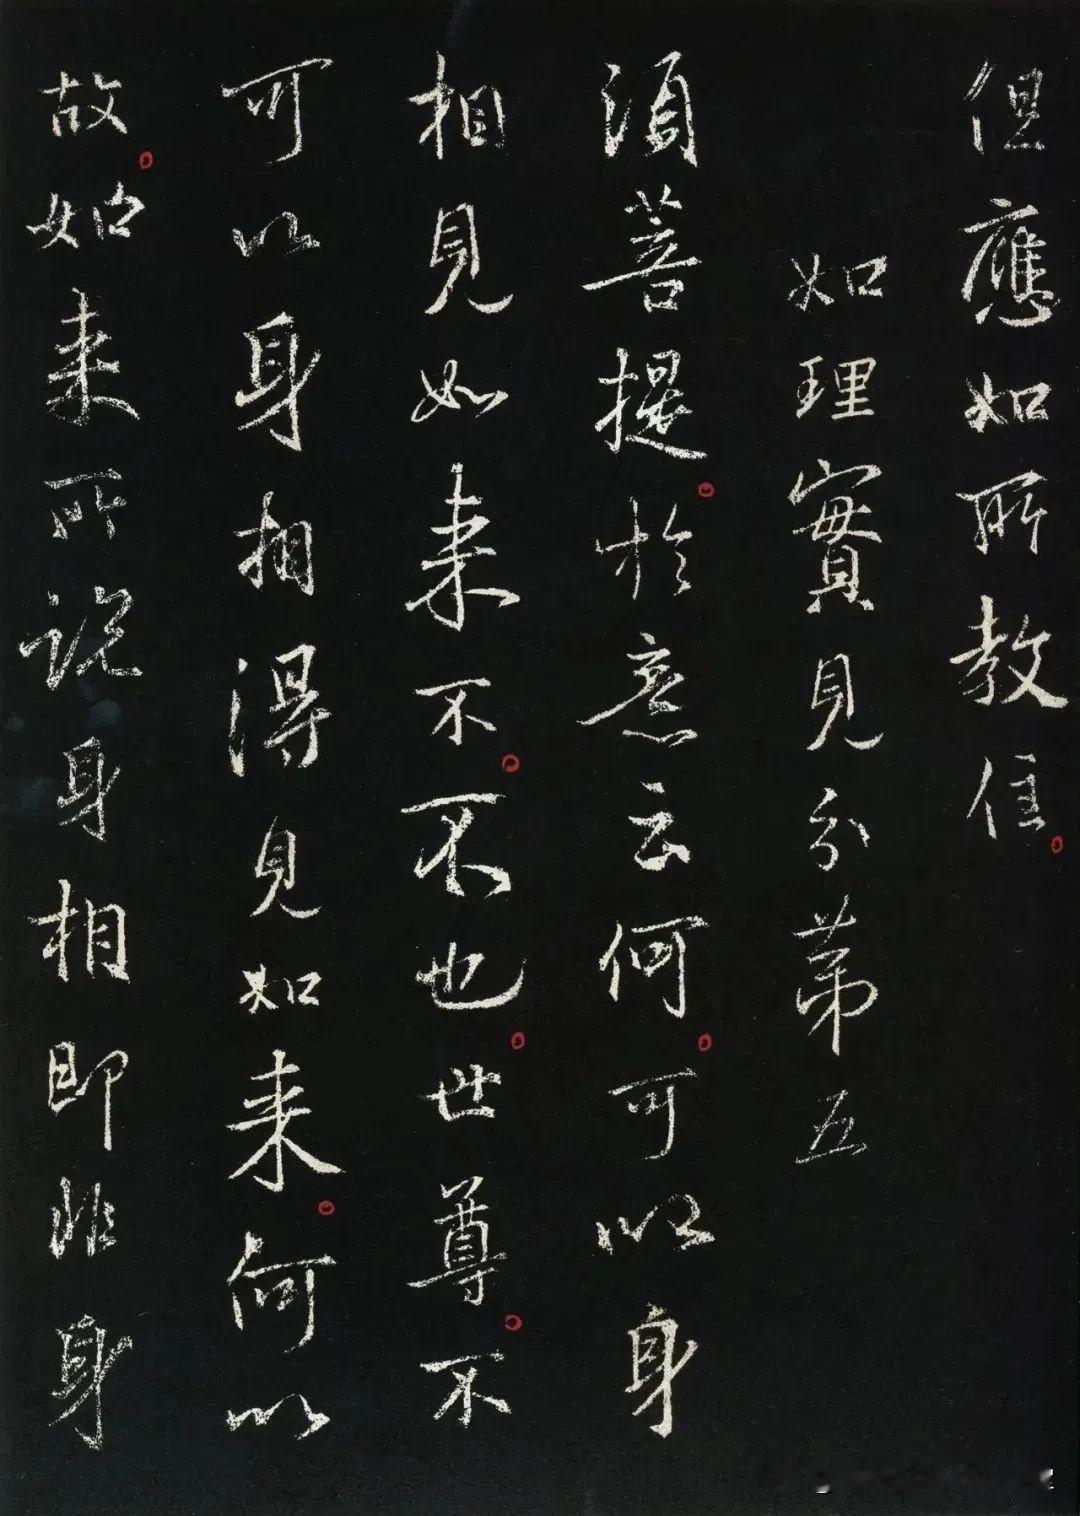 但應如所教住。
如理實見分第五
須菩提。於意云何。可以身
相見如來不。不也。世尊。不
可以身相得見如來。何以
故。如來所說身相即非身